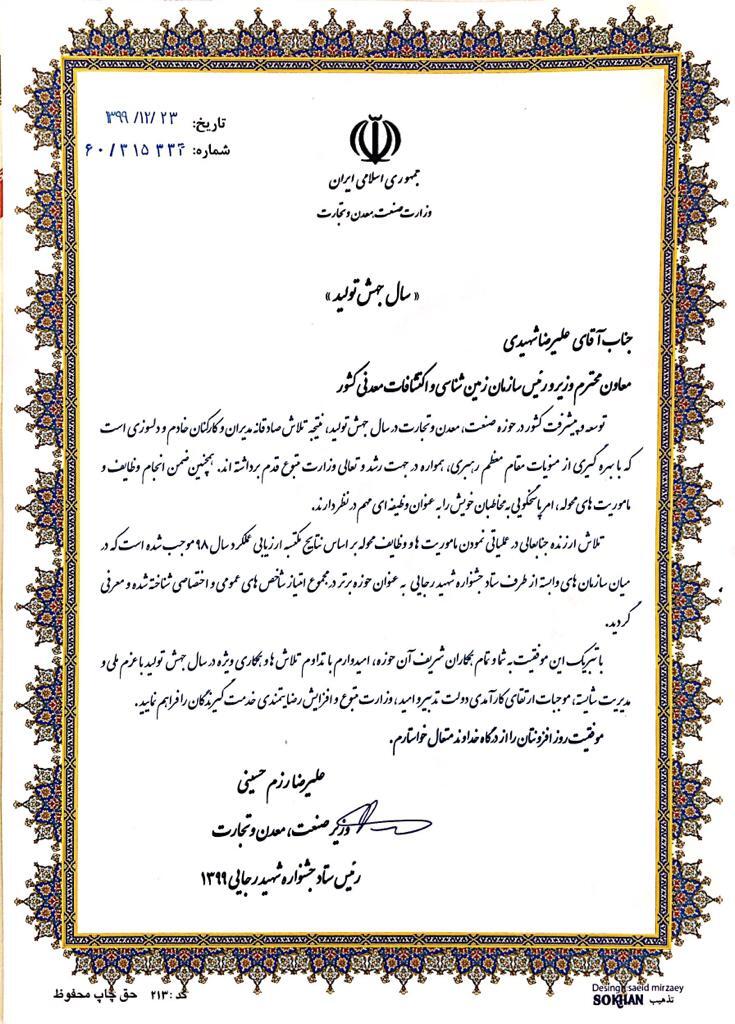 تاریخ: ۱۳۹۹/۱۲/۲۳
شماره: ۶۰/۳۱۵۳۳۴
جمهوری اسلامی ایران
وزارت صنعت، معدن و تجارت
«سال جهش تولید»
جناب آقای علیرضا شهیدی
معاون محترم وزیر و رئیس سازمان زمین شناسی و اکتشافات معدنی کشور
توسعه و پیشرفت کشور در حوزه صنعت، معدن و تجارت در سال جهش تولید، نتیجه تلاش صادقانه مدیران و کارکنان خادم و دلسوزی است
که با بهره گیری از منویات مقام معظم رهبری، همواره در جهت رشد و تعالی وزارت متبوع قدم برداشته اند. همچنین ضمن انجام وظایف و
ماموریت های محوله، امر پاسخگویی به مخاطبان خویش را به عنوان وظیفه ای مهم در نظر دارند.
تلاش ارزنده جنابعالی در عملیاتی نمودن ماموریت ها و وظایف محوله بر اساس نتایج مکتسبه ارزیابی عملکرد سال ۹۸ موجب شده است که در
میان سازمان های وابسته از طرف ستاد جشنواره شهید رجایی به عنوان حوزه برتر در مجموع امتیاز شاخص های عمومی و اختصاصی شناخته شده و معرفی
گردید.
با تبریک این موفقیت به شما و تمام همکاران شریف آن حوزه، امیدوارم با تداوم تلاش ها و همکاری ویژه در سال جهش تولید با عزم ملی و
مدیریت شایسته، موجبات ارتقای کارآمدی دولت تدبیر و امید، وزارت متبوع و افزایش رضایتمندی خدمت گیرندگان را فراهم نمایید.
موفقیت روز افزونتان را از درگاه خداوند متعال خواستارم.
علیرضا رزم حسینی
وزیر صنعت، معدن و تجارت
رئیس ستاد جشنواره شهید رجایی ۱۳۹۹
کد: ۲۱۳ حق چاپ محفوظ
Desing: saeid mirzaey
تذهیب SOKHAN